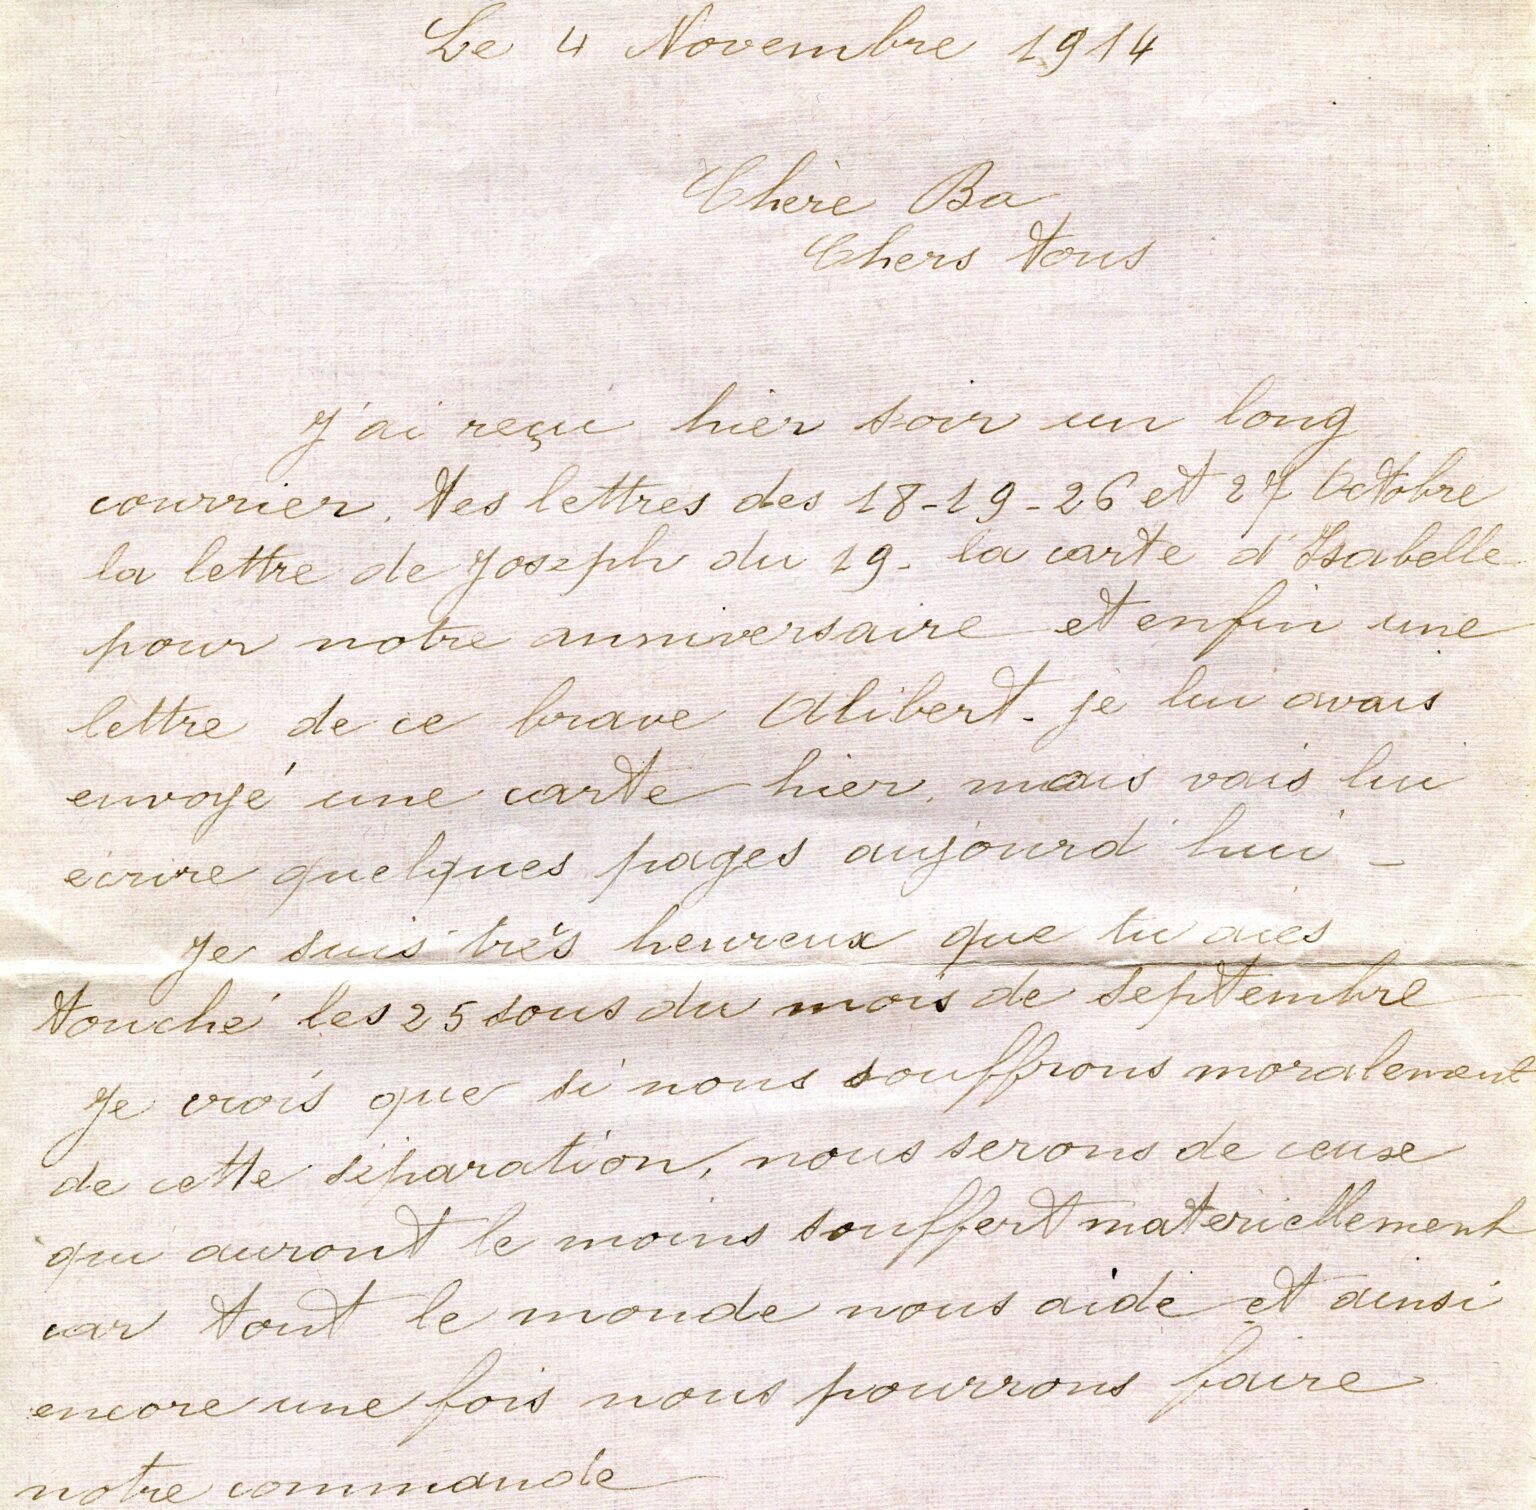 Le 4 Novembre 1914
Chère Ba
Chers tous
J'ai reçu hier soir un long
courrier. tes lettres des 18-19-26 et 27 Octobre
la lettre de Joseph du 19- la carte d'Isabelle
pour notre anniversaire et enfin une
lettre de ce brave Alibert. je lui avais
envoyé une carte hier, mais vais lui
écrire quelques pages aujourd'hui -
Je suis très heureux que tu aies
touché les 25 sous du mois de septembre
Je crois que si nous souffrons moralement
de cette séparation, nous serons de ceux
qui auront le moins souffert matériellement
car tout le monde nous aide et ainsi
encore une fois nous pourrons faire
notre commande